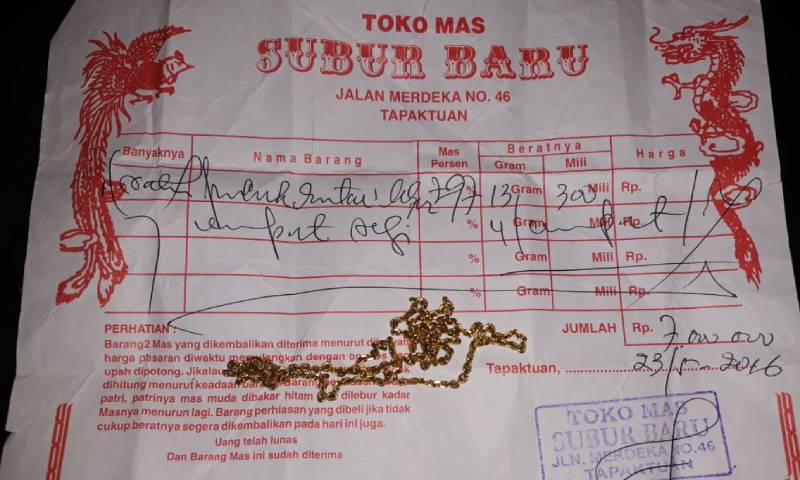 TOKO MAS
SUBUR BARU
JALAN MERDEKA NO. 46
TAPAKTUAN
Banyaknya Nama Barang Mas Persen Beratnya Gram Mili Harga
% 13 Gram 300 Mili Rp.
empat segi % 4 Gram Mili Rp.
% Gram Mili Rp.
% Gram Mili Rp.
JUMLAH Rp. 7.000.000
PERHATIAN :
Barang2 Mas yang dikembalikan diterima menurut
harga pasaran diwaktu dengan
upah dipotong. Jikalau
dihitung menurut keadaan
patri, patrinya mas muda dibakar hitam dilebur kadar
Masnya menurun lagi. Barang perhiasan yang dibeli jika tidak
cukup beratnya segera dikembalikan pada hari ini juga.
Uang telah lunas
Dan Barang Mas ini sudah diterima
Tapaktuan, 2016
TOKO MAS
SUBUR BARU
JLN. MERDEKA NO.46
TAPAKTUAN